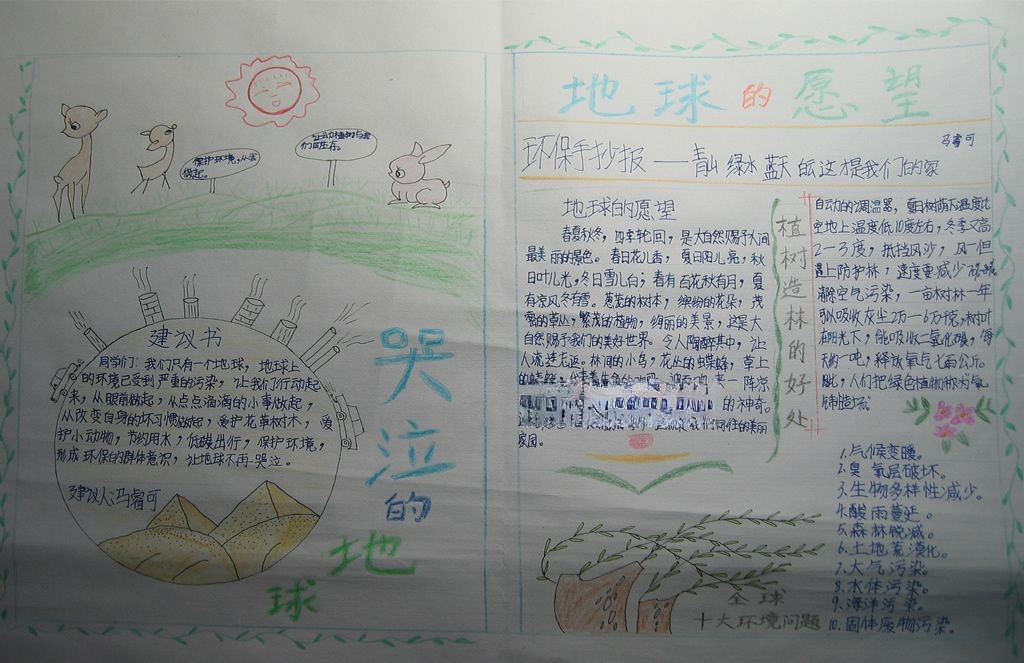 保护环境，从我
做起。
让动植物与我
们同生存。
建议书
同学们：我们只有一个地球，地球上
的环境已受到严重的污染，让我们行动起
来，从眼前做起，从点点滴滴的小事做起，
从改变自身的坏习惯做起，爱护花草树木，爱
护小动物，节约用水，低碳出行，保护环境，
形成环保的群体意识，让地球不再哭泣。
建议人：冯睿可
哭泣的地球
地球的愿望
冯睿可
环保手抄报——青山绿水蓝天的这才是我们的家
地球的愿望
春夏秋冬，四季轮回，是大自然赐予人间
最美丽的景色。春日花儿香，夏日阳儿亮，秋
日叶儿光，冬日雪儿白；春有百花秋有月，夏
有凉风冬有雪。葱茏的树木，缤纷的花朵，茂
密的草丛，繁茂的植物，绚丽的美景，这是大
自然赐予我们的美好世界。令人陶醉其中，让
人流连忘返。林间的小鸟，花丛的蝴蝶，草上
一阵凉
的神奇。
我们同住的美丽
家园。
植树造林的好处
自动的调温器，夏日树荫下温度比
空地上温度低10度左右，冬季又高
2—3度，抵挡风沙，风一但
遇上防护林，速度要减少
清除空气污染，一亩树林一年
可以吸收灰尘2万—6万千克，树叶
在阳光下，能吸收二氧化碳，每
天约一吨，释放氧气七百公斤。
因此，人们把绿色植物称为氧
气制造场。
1.气候变暖。
2.臭氧层破坏。
3.生物多样性减少。
4.酸雨蔓延。
5.森林锐减。
6.土地荒漠化。
7.大气污染。
8.水体污染。
9.海洋污染。
10.固体废物污染。
全球
十大环境问题